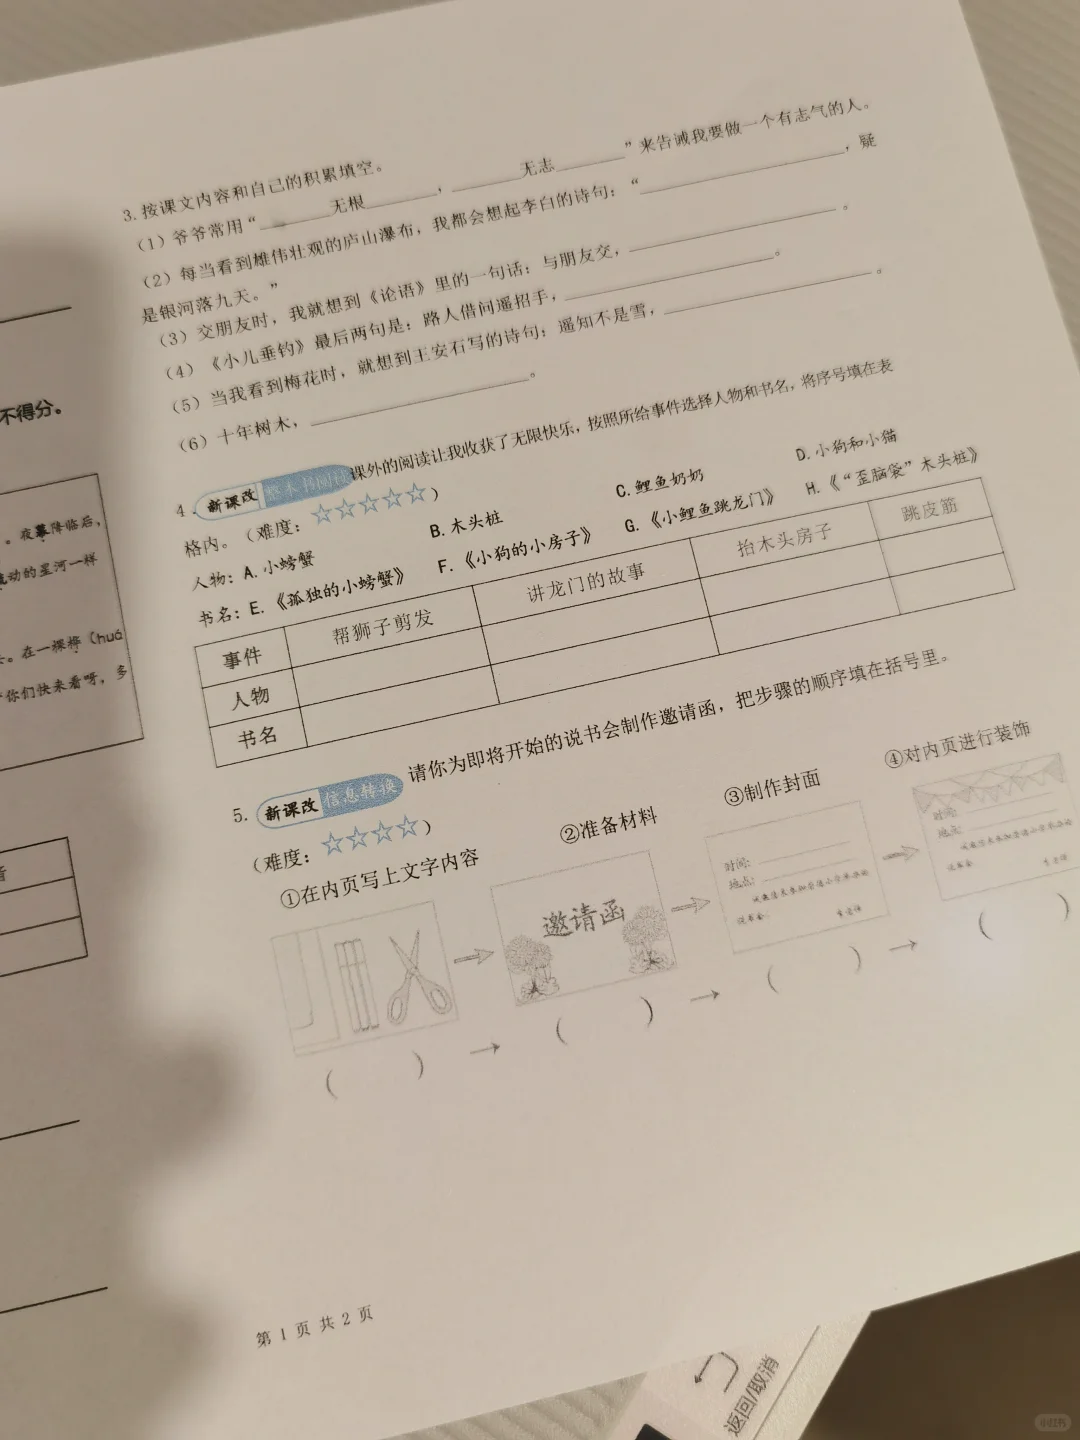 不得分。
。夜幕降临后，
流动的星河一样
。在一棵桦（huá
你们快来看呀，多
3. 按课文内容和自己的积累填空。
（1）爷爷常用“______无根______，______无志______”来告诫我要做一个有志气的人。
（2）每当看到雄伟壮观的庐山瀑布，我都会想起李白的诗句：“______，疑
是银河落九天。”
（3）交朋友时，我就想到《论语》里的一句话：与朋友交，______。
（4）《小儿垂钓》最后两句是：路人借问遥招手，______。
（5）当我看到梅花时，就想到王安石写的诗句：遥知不是雪，______。
（6）十年树木，______。
4. 新课改 整本书阅读 课外的阅读让我收获了无限快乐，按照所给事件选择人物和书名，将序号填在表
格内。（难度：☆☆☆☆☆）
人物：A. 小螃蟹 B. 木头桩 C. 鲤鱼奶奶 D. 小狗和小猫
书名：E.《孤独的小螃蟹》 F.《小狗的小房子》 G.《小鲤鱼跳龙门》 H.《“歪脑袋”木头桩》
事件 帮狮子剪发 讲龙门的故事 抬木头房子 跳皮筋
人物
书名
5. 新课改 信息转换 请你为即将开始的说书会制作邀请函，把步骤的顺序填在括号里。
（难度：☆☆☆☆）
①在内页写上文字内容 ②准备材料 ③制作封面 ④对内页进行装饰
邀请函
时间：
地点：
时间：
地点：
（ ）→（ ）→（ ）→（ ）
第 1 页 共 2 页
返回/取消
小红书